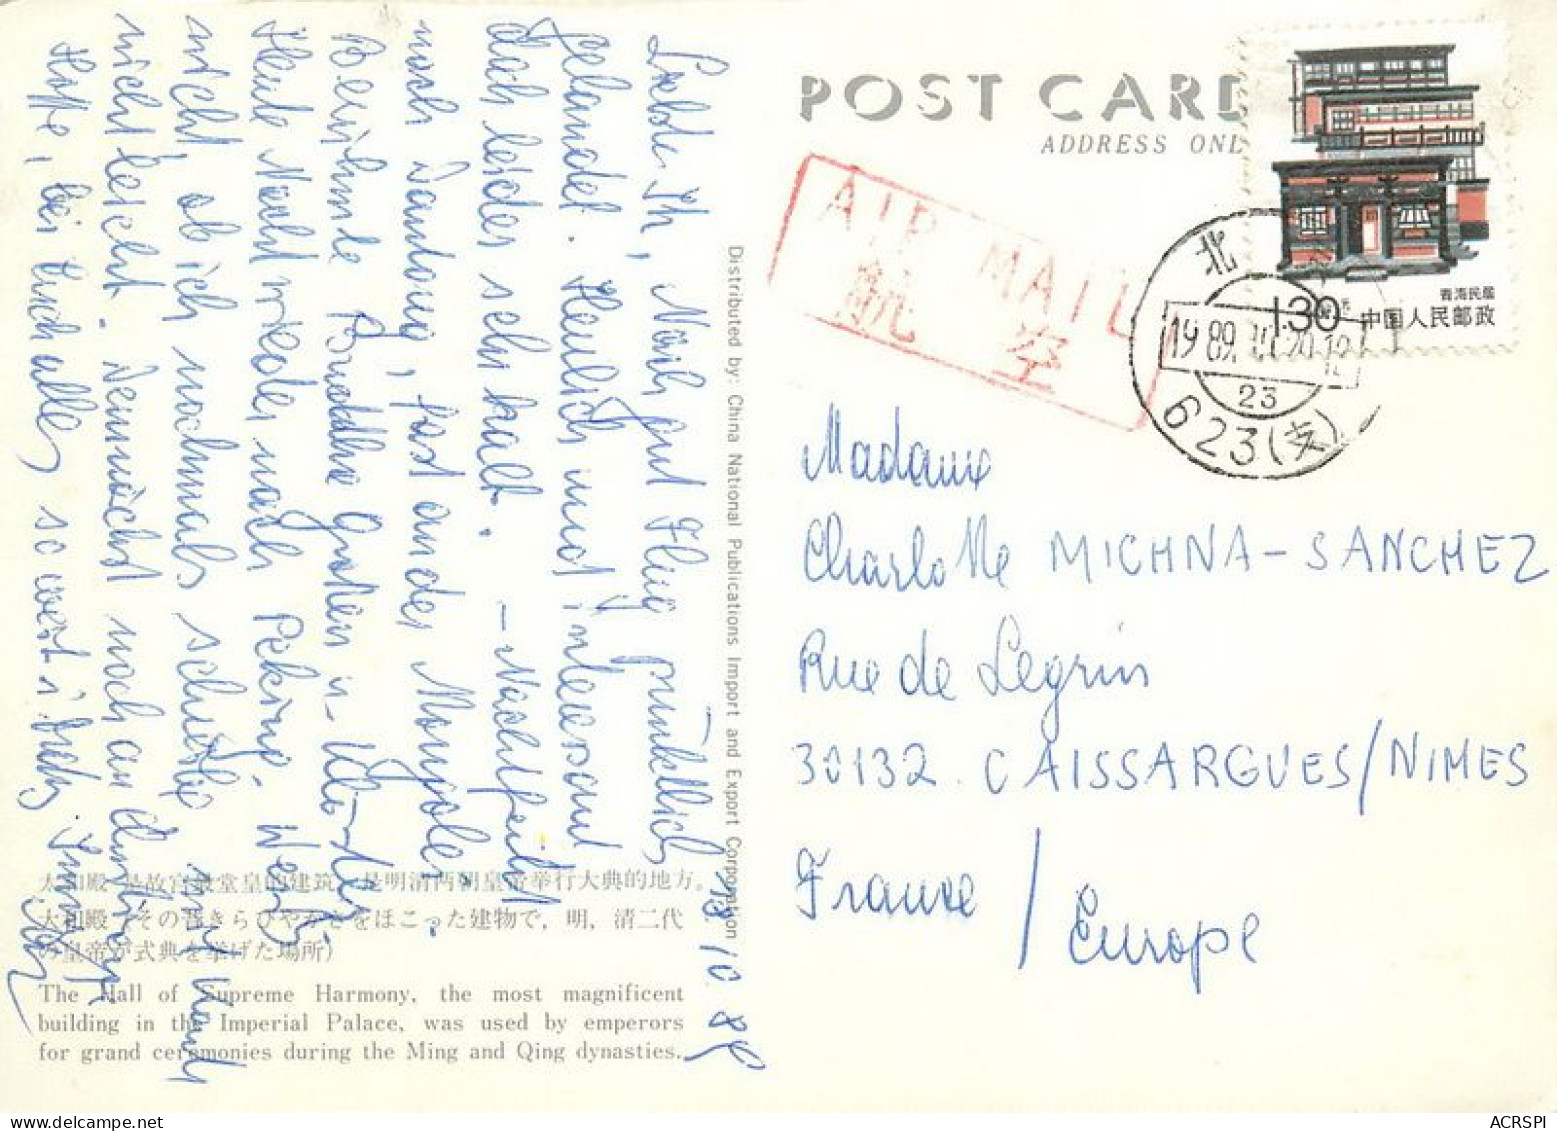 POST CARD
ADDRESS ONL
AIR MAIL
航 空
青海民居
130
中国人民邮政
北
1989.10.20.12
23
623(支)
Madame
Charlotte MICHNA-SANCHEZ
Rue de Legrin
30132 CAISSARGUES/NIMES
France / Europe
Distributed by: China National Publications Import and Export Corporation
13 10 89
Liebe Ihr, Nach gut Flug pünktlich
gelandet. Herrlich und interessant
doch leider sehr kalt. – Nachtfahrt
nach Dantong, fast an der Mongolei.
Berühmte Buddha Grotten u. Kloster
Heute Nacht wieder nach Peking. Weiß
nicht, ob ich nochmals schreibe
nicht leicht. Demnächst noch an
Hoffe, bei Euch alles so weit i.
太和殿 是故宫最堂皇的建筑，是明清两朝皇帝举行大典的地方。
太和殿（その昔きらびやかさをほこった建物で，明，清二代
の皇帝が式典を挙げた場所）
The Hall of Supreme Harmony, the most magnificent
building in the Imperial Palace, was used by emperors
for grand ceremonies during the Ming and Qing dynasties.
ACRSPI